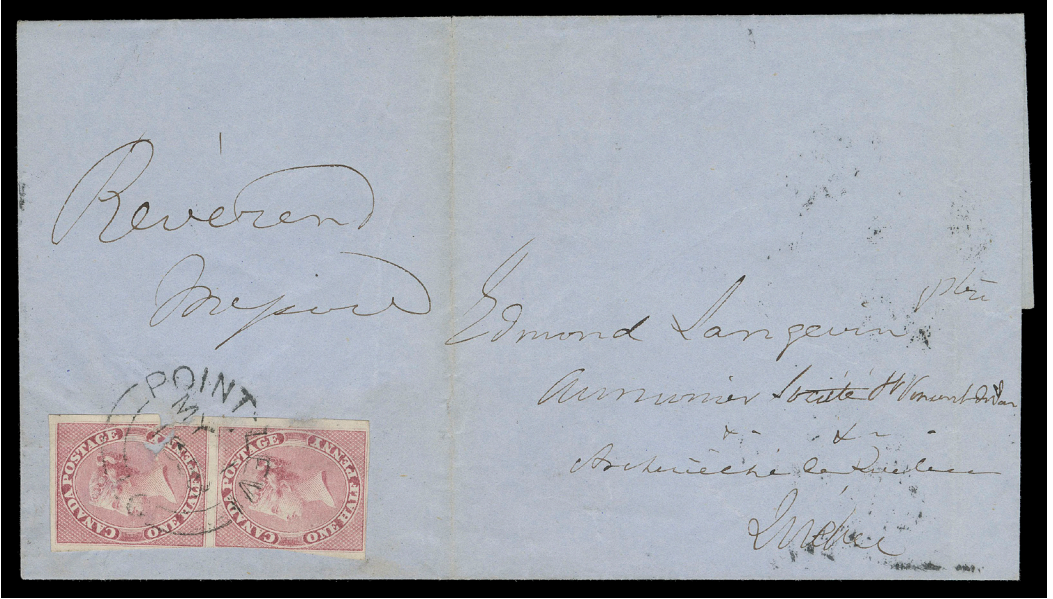 Révérend
Messire
Edmond Langevin ptre
Aumônier Société St Vincent de Paul
&- &-
Archevêché de Québec
Québec
POINT LEVI
CANADA POSTAGE ONE HALF PENNY
CANADA POSTAGE ONE HALF PENNY